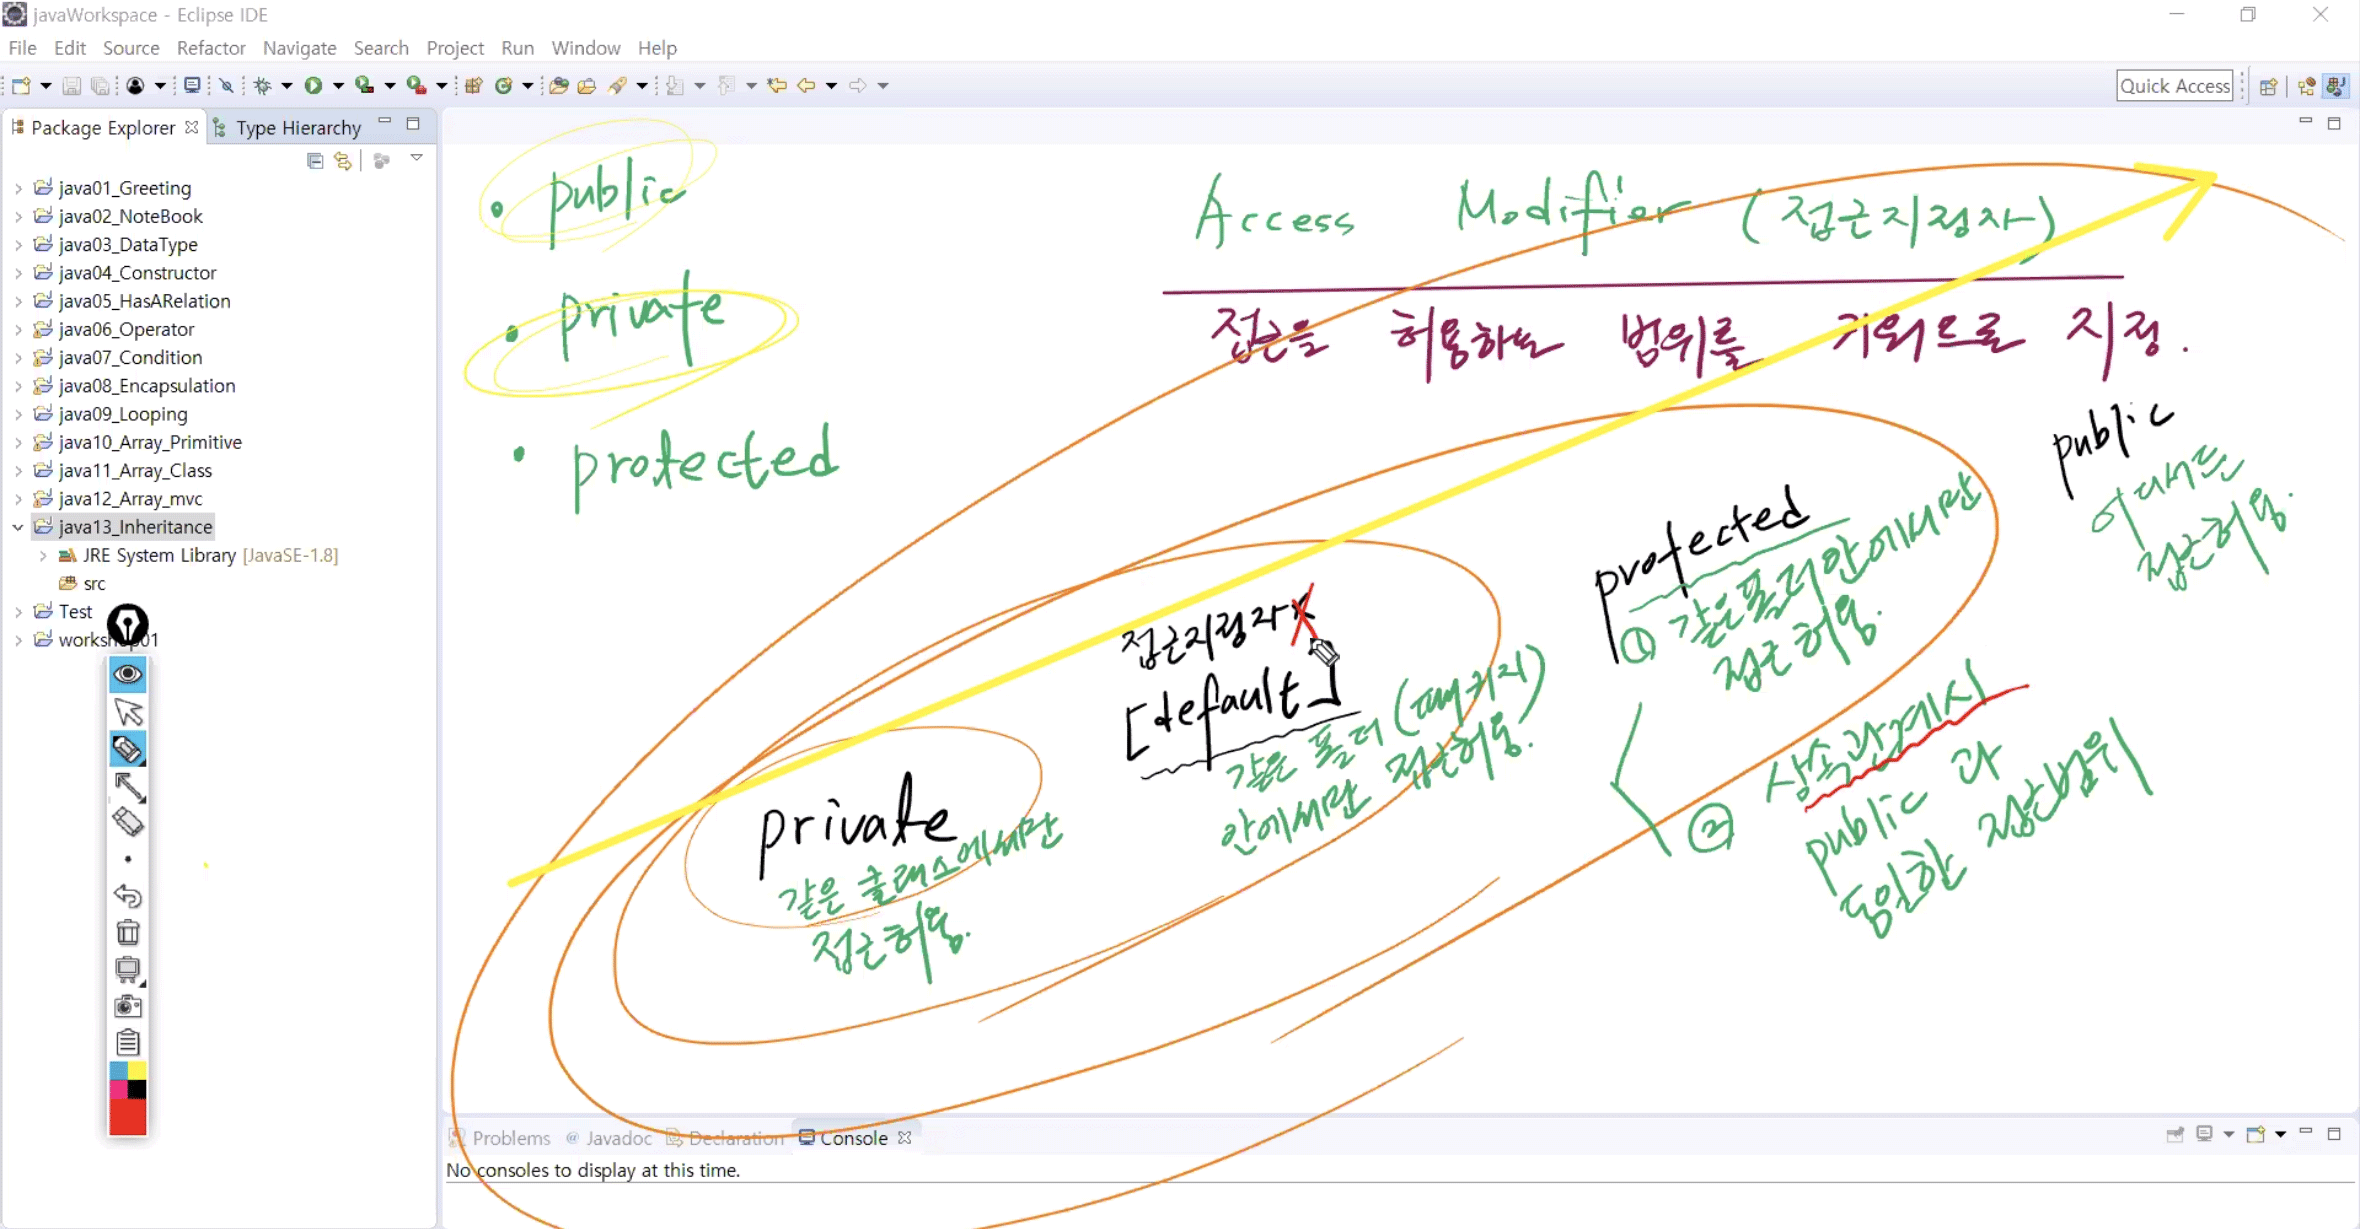 javaWorkspace - Eclipse IDE
File Edit Source Refactor Navigate Search Project Run Window Help
Quick Access
Package Explorer
Type Hierarchy
java01_Greeting
java02_NoteBook
java03_DataType
java04_Constructor
java05_HasARelation
java06_Operator
java07_Condition
java08_Encapsulation
java09_Looping
java10_Array_Primitive
java11_Array_Class
java12_Array_mvc
java13_Inheritance
JRE System Library [JavaSE-1.8]
src
Test
workshop01
• public
• private
• protected
Access Modifier (접근지정자)
접근을 허용하는 범위를 키워드로 지정.
private
같은 클래스에서만
접근허용.
접근지정자 X
[default]
같은 폴더 (패키지)
안에서만 접근허용.
protected
① 같은폴더안에서만
접근 허용.
② 상속관계시
public 과
동일한 접근범위
public
어디서든
접근허용.
Problems @ Javadoc Declaration Console
No consoles to display at this time.